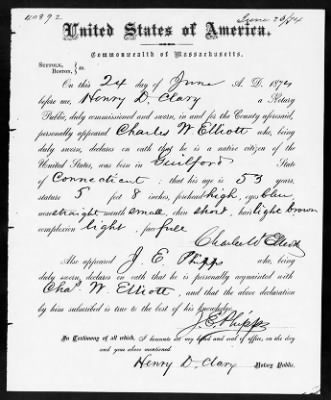 40892 June 25/74
United States of America.
Commonwealth of Massachusetts.
SUFFOLK,
BOSTON, } ss.
On this 24 day of June A. D. 1874
before me, Henry D. Clary a Notary
Public, duly commissioned and sworn, in and for the County aforesaid,
personally appeared Charles W Elliott who, being
duly sworn, declares on oath that he is a native citizen of the
United States, was born in Guilford State
of Connecticut; that his age is 53 years,
stature 5 feet 8 inches, forehead high, eyes blue
nose straight mouth small chin short, hair light brown
complexion light, face full
Charles W Elliott
Also appeared J. E. Phipps who, being
duly sworn, declares on oath that he is personally acquainted with
Chas. W. Elliott, and that the above declaration
by him subscribed is true to the best of his knowledge.
J. E. Phipps
In Testimony of all which, I hereunto set my hand and seal of office, on the day
and year above mentioned.
Henry D. Clary Notary Public.